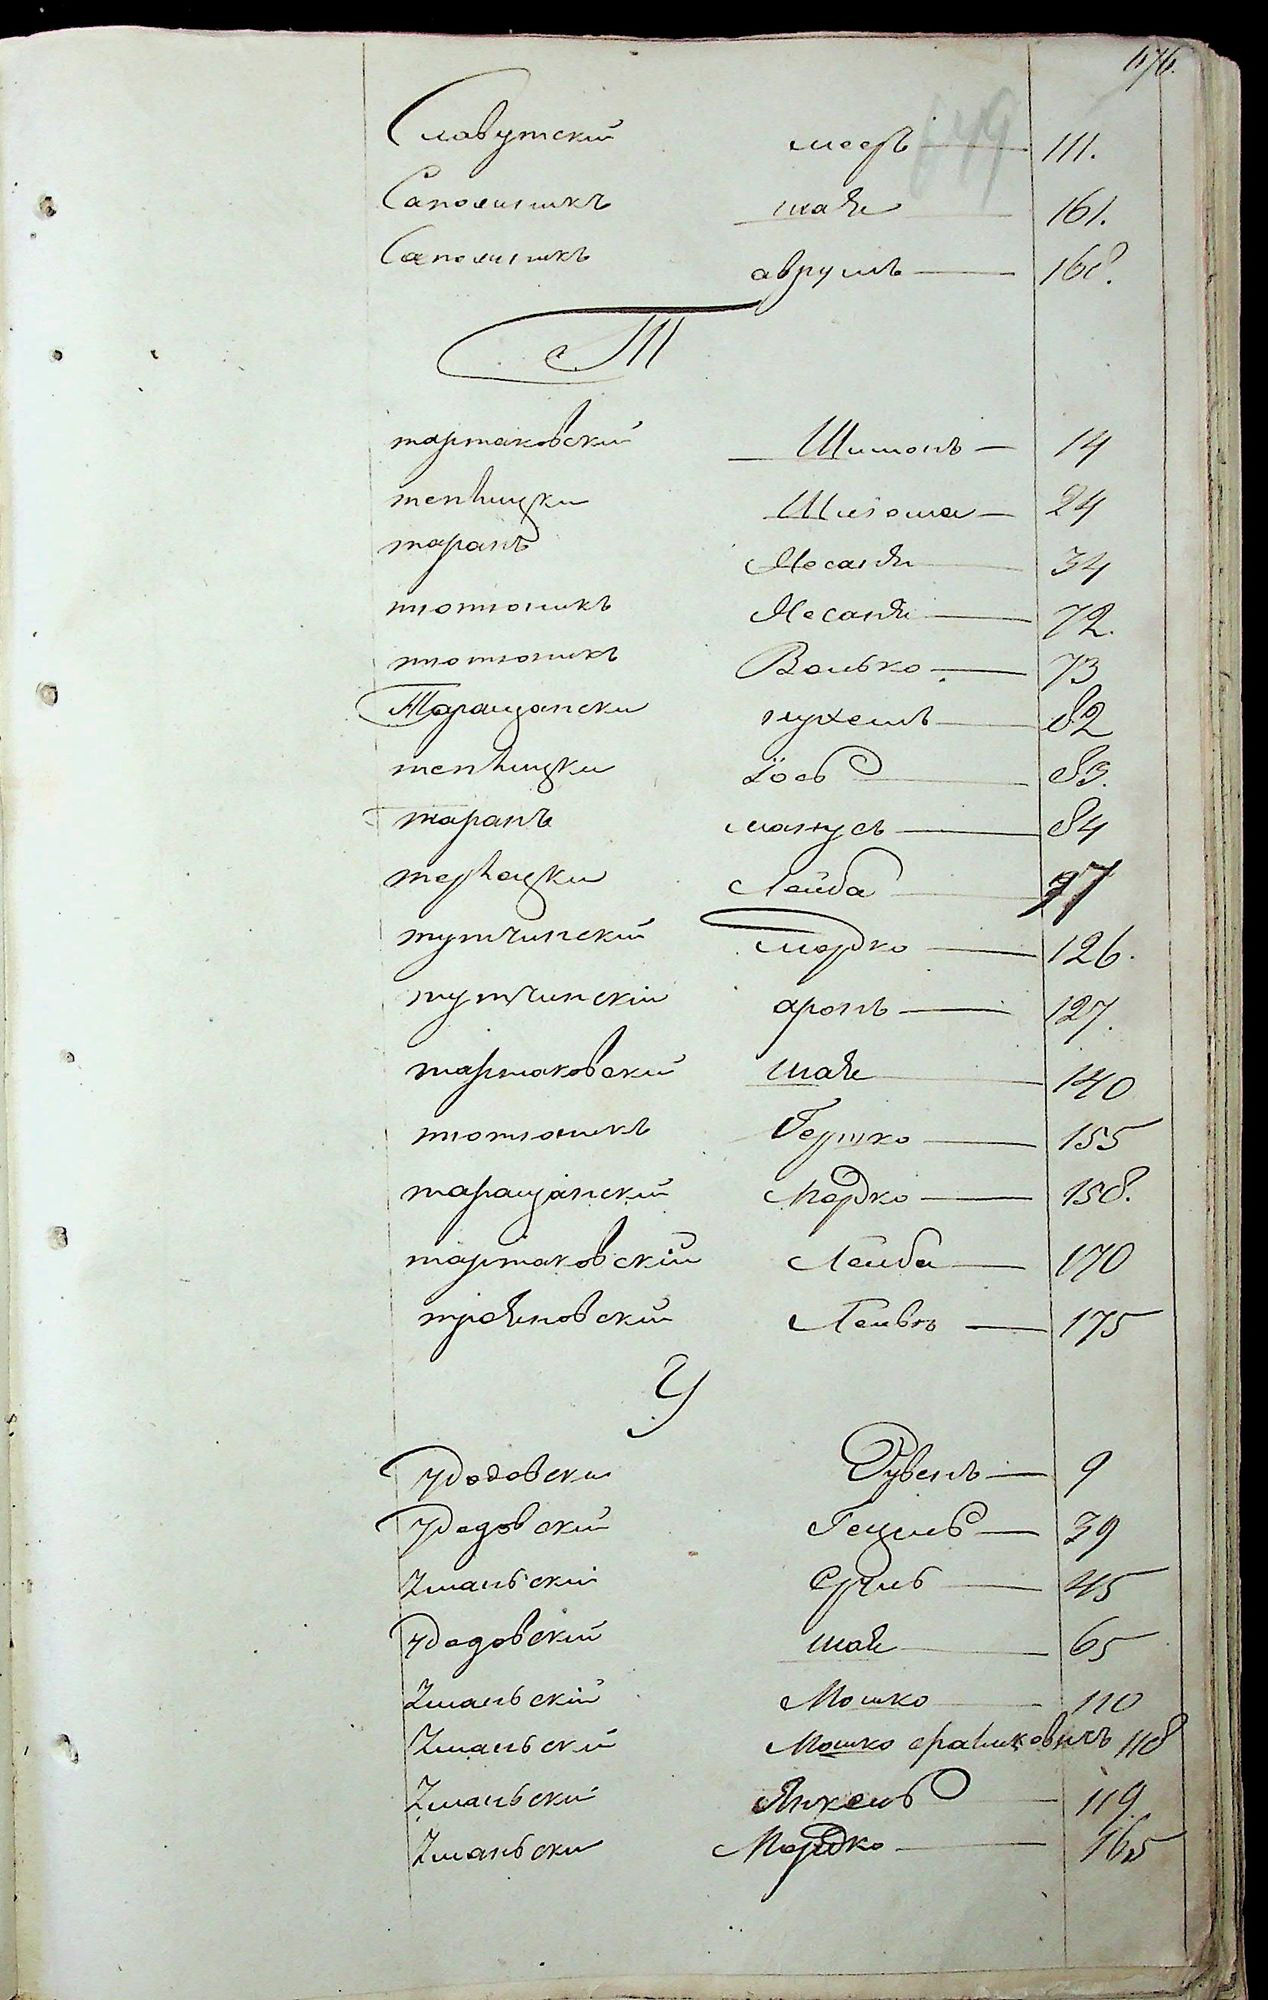 676.
649
Славутский меерь 111.
Сапожникъ шаѣ 161.
Сапожникъ аврумъ 168.
Т
тартаковский Шимонъ 14
тепѣицки 24
таранъ Несанѣ 34
тютюникъ Несанѣ 72.
тютюникъ Волько 73
Таращански нухемъ 82
тепѣицки Їось 83.
таранъ манусъ 84
Лейба 97
тутчинский мордко 126.
тутчинскій аронъ 127.
тартаковский шаѣ 140
тютюникъ Гершко 155
таращанский Мордко 158.
тартаковскій Лейба 170
троѣновский Лейвъ 175
У
удодовски Рувенъ 9
удодовский Гециль 39
Уманьский Сруль 45
удодовский шаѣ 65
Уманьский Мошко 110
Уманьский Мошко 118
Уманьский Янкель 119.
Уманьски Мордко 165